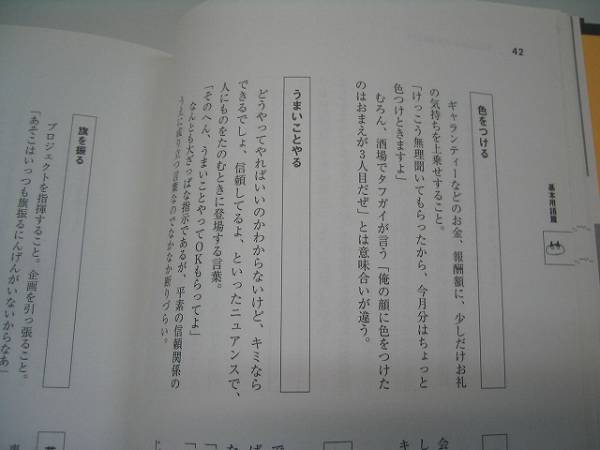 42
基本用語篇
色をつける
ギャランティーなどのお金、報酬額に、少しだけお礼
の気持ちを上乗せすること。
「けっこう無理聞いてもらったから、今月分はちょっと
色つけときますよ」
むろん、酒場でタフガイが言う「俺の顔に色をつけた
のはおまえが3人目だぜ」とは意味合いが違う。
うまいことやる
どうやってやればいいのかわからないけど、キミなら
できるでしょ、信頼してるよ、といったニュアンスで、
人にものをたのむときに登場する言葉。
「そのへん、うまいことやってOKもらってよ」
なんとも大ざっぱな指示であるが、平素の信頼関係の
うえに成り立つ言葉なのでなかなか断りづらい。
旗を振る
プロジェクトを指揮すること。企画を引っ張ること。
「あそこはいっつも旗振るにんげんがいないからなあ」